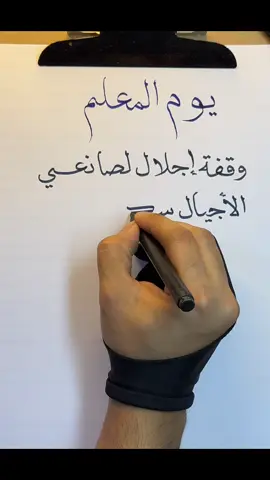 يوم المعلم
وقفة إجلال لصانعي
الأجيال